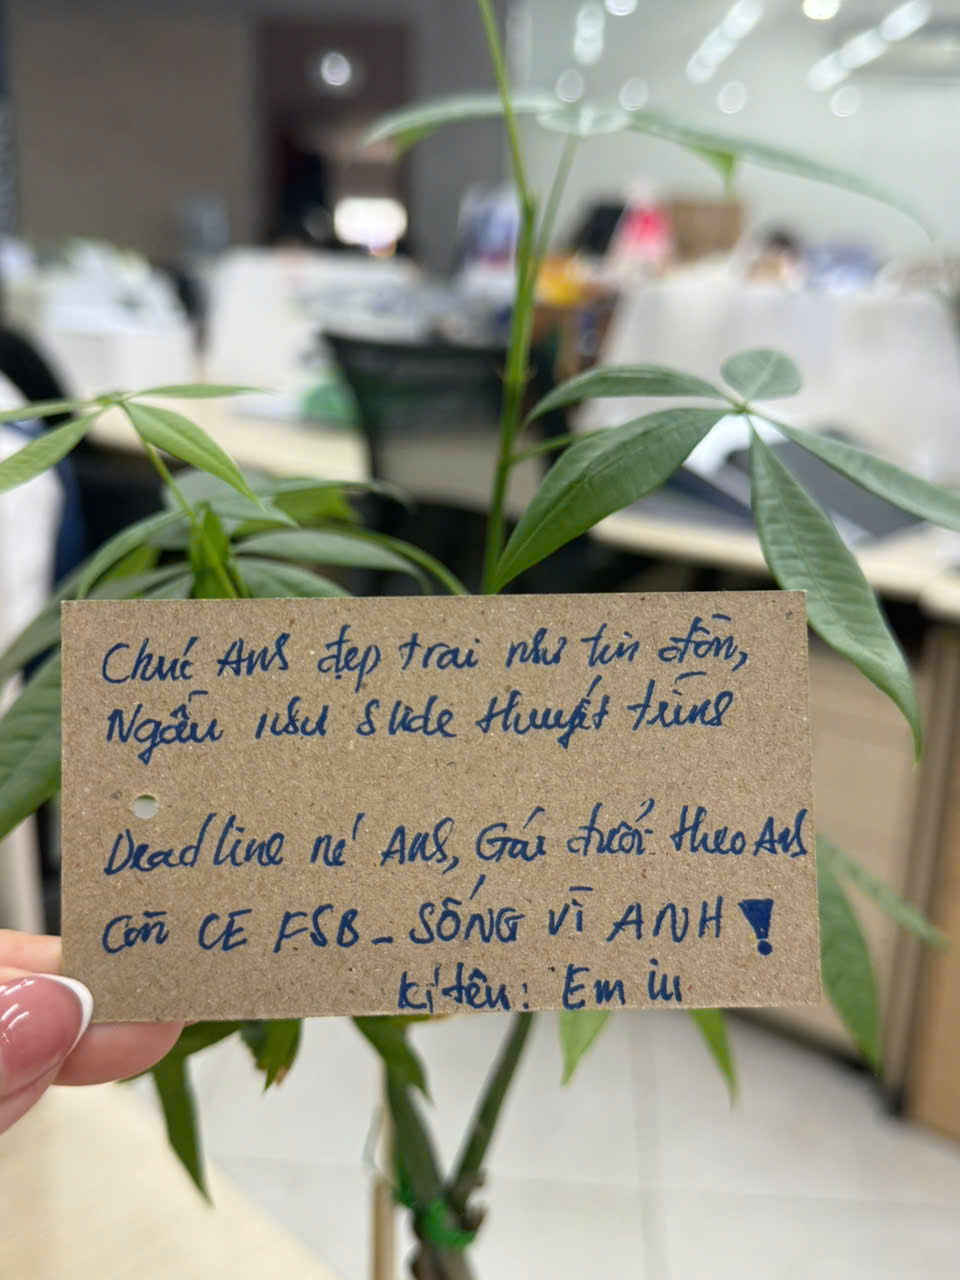 Chúc Anh đẹp trai như tin đồn,
Ngầu như slide thuyết trình
Deadline né Anh, Gái đuổi theo Anh
Còn CE FSB - SỐNG VÌ ANH!
Kí tên: Em iu